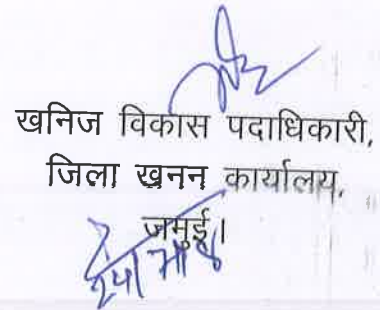 खनिज विकास पदाधिकारी,
जिला खनन कार्यालय,
जमुई।